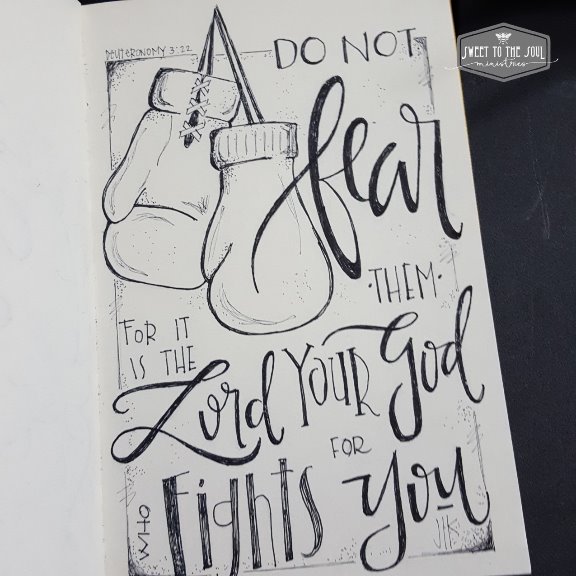 DEUTERONOMY 3:22
DO NOT
fear
·THEM·
FOR IT
IS THE
Lord YOUR God
WHO Fights FOR You
JHK
SWEET TO THE SOUL
ministries